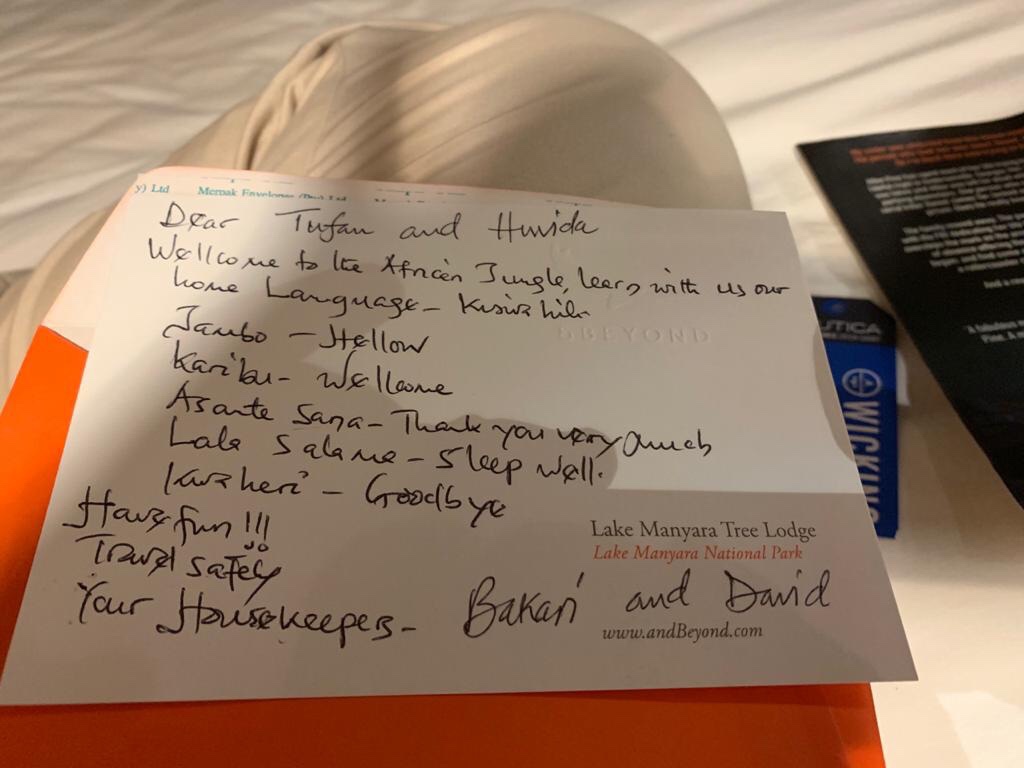 y) Ltd Merpak Envelopes (Pty) Ltd
Dear Tufan and Huvida
Wellcome to the African Jungle, learn with us our
home Language - Kiswahili
&BEYOND
Jambo - Hellow
Karibu - Wellcome
Asante Sana - Thank you very much
Lala Salama - Sleep well.
Kwaheri - Goodbye
Have fun !!!
Travel safely
Your Housekeepers - Bakari and David
Lake Manyara Tree Lodge
Lake Manyara National Park
www.andBeyond.com
UTICA
WICKING